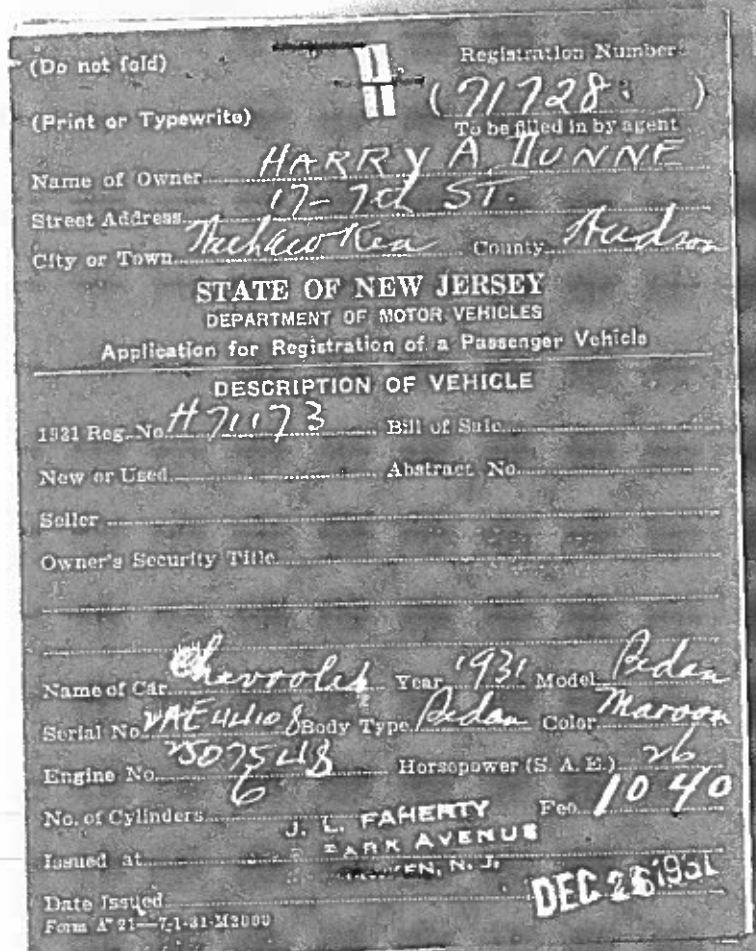 (Do not fold)
Registration Number
(Print or Typewrite)
( 71728 )
To be filled in by agent
Name of Owner HARRY A DUNNE
Street Address 17-7th ST.
City or Town Weehawken County Hudson
STATE OF NEW JERSEY
DEPARTMENT OF MOTOR VEHICLES
Application for Registration of a Passenger Vehicle
DESCRIPTION OF VEHICLE
1931 Reg. No. H71173 Bill of Sale
New or Used Abstract No.
Seller
Owner's Security Title
Name of Car Chevrolet Year 1931 Model Sedan
Serial No. Body Type Sedan Color Maroon
Engine No. Horsepower (S. A. E.) 26
No. of Cylinders 6 Fee 10 40
J. L. FAHERTY
Issued at PARK AVENUE
N. J.
Date Issued DEC 26 1931
Form A 21—7-1-31-M2000